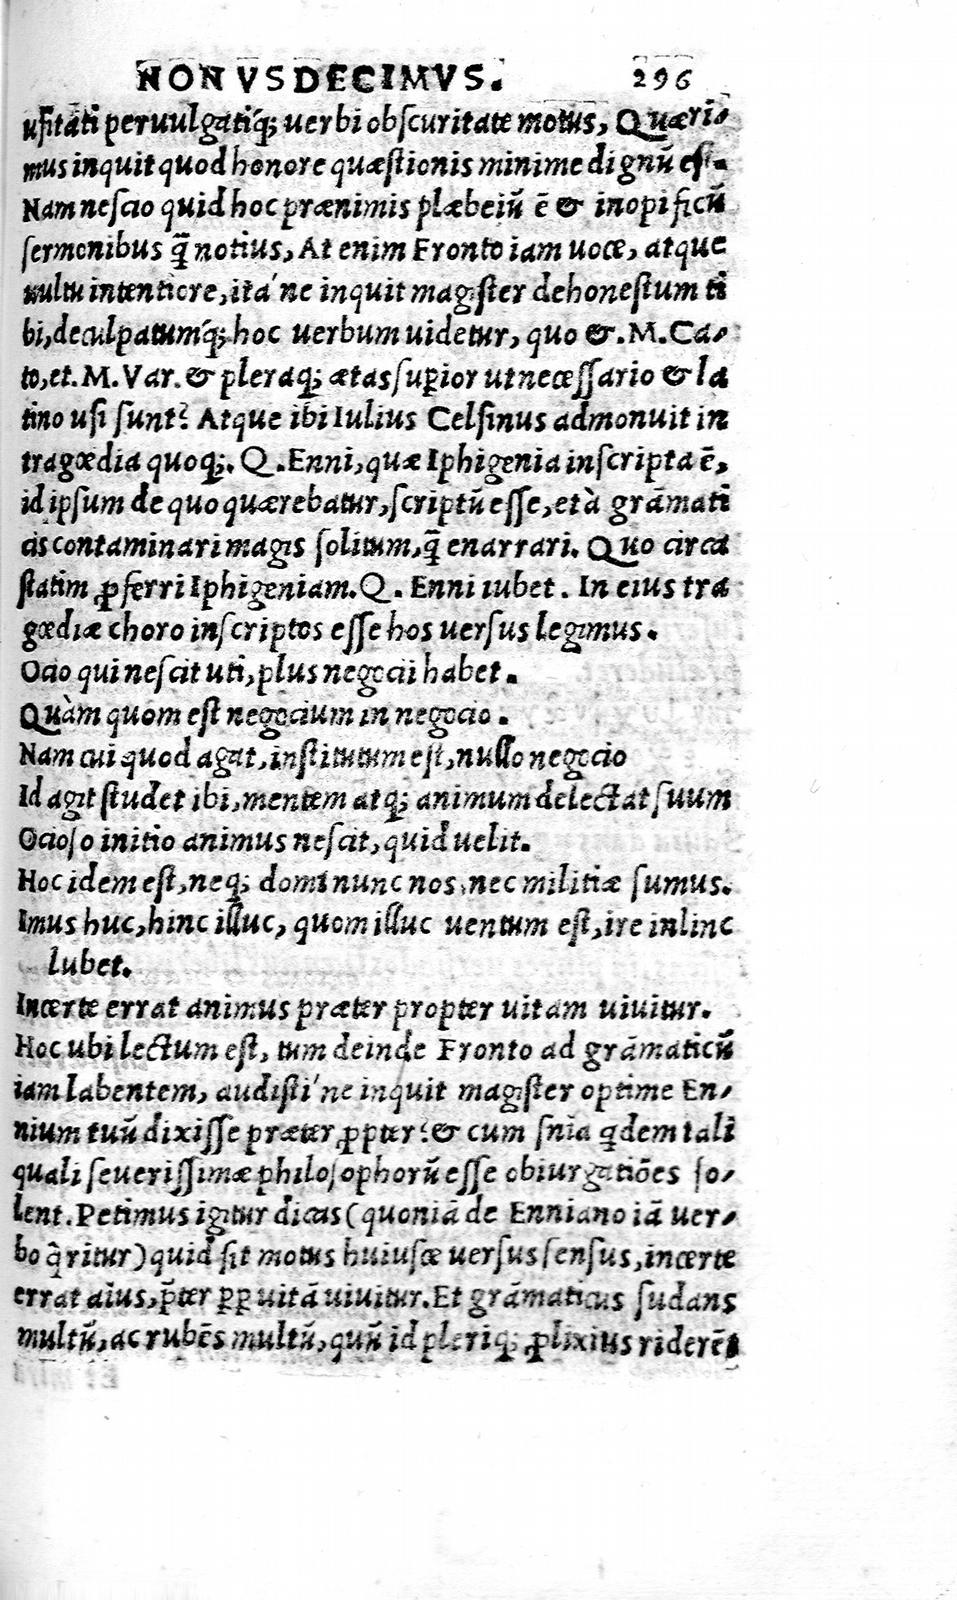 NONVSDECIMVS. 296
usitati peruulgatiq́; uerbi obscuritate motus, Quæri-
mus inquit quod honore quæstionis minime dignũ est.
Nam nescio quid hoc prænimis plæbeiũ ẽ & inopificũ
sermonibus q̃ notius, At enim Fronto iam uoce, atque
uultu intentiore, ita'ne inquit magister dehonestum ti
bi, deculpatumq́; hoc uerbum uidetur, quo &. M. Ca-
to, et. M. Var. & pleraq; ætas supior ut necessario & la
tino usi sunt? Atque ibi Iulius Celsinus admonuit in
tragœdia quoq;. Q. Enni, quæ Iphigenia inscripta ẽ,
id ipsum de quo quærebatur, scriptũ esse, et à grãmati
cis contaminari magis solitum, q̃ enarrari. Quo circa
statim ꝓferri Iphigeniam. Q. Enni iubet. In eius tra
gœdiæ choro inscriptos esse hos uersus legimus.
Ocio qui nescit uti, plus negocii habet.
Quàm quom est negocium in negocio.
Nam cui quod agat, institutum est, nullo negocio
Id agit studet ibi, mentem atq; animum delectat suum
Ocioso initio animus nescit, quid uelit.
Hoc idem est, neq; domi nunc nos, nec militiæ sumus.
Imus huc, hinc illuc, quom illuc uentum est, ire inlinc
lubet.
Incerte errat animus præter propter uitam uiuitur.
Hoc ubi lectum est, tum deinde Fronto ad grãmaticũ
iam labentem, audisti'ne inquit magister optime En-
nium tuũ dixisse præter ꝓpter? & cum snia qdem tali
quali seuerissimæ philosophorũ esse obiurgatiões so-
lent. Petimus igitur dicas (quoniã de Enniano iã uer-
bo q̃ritur) quid sit motus huiusce uersus sensus, incerte
errat aius, p̃ter ꝓp uitã uiuitur. Et grãmaticus sudans
multũ, ac rubẽs multũ, quũ id pleriq; ꝓlixius riderẽt